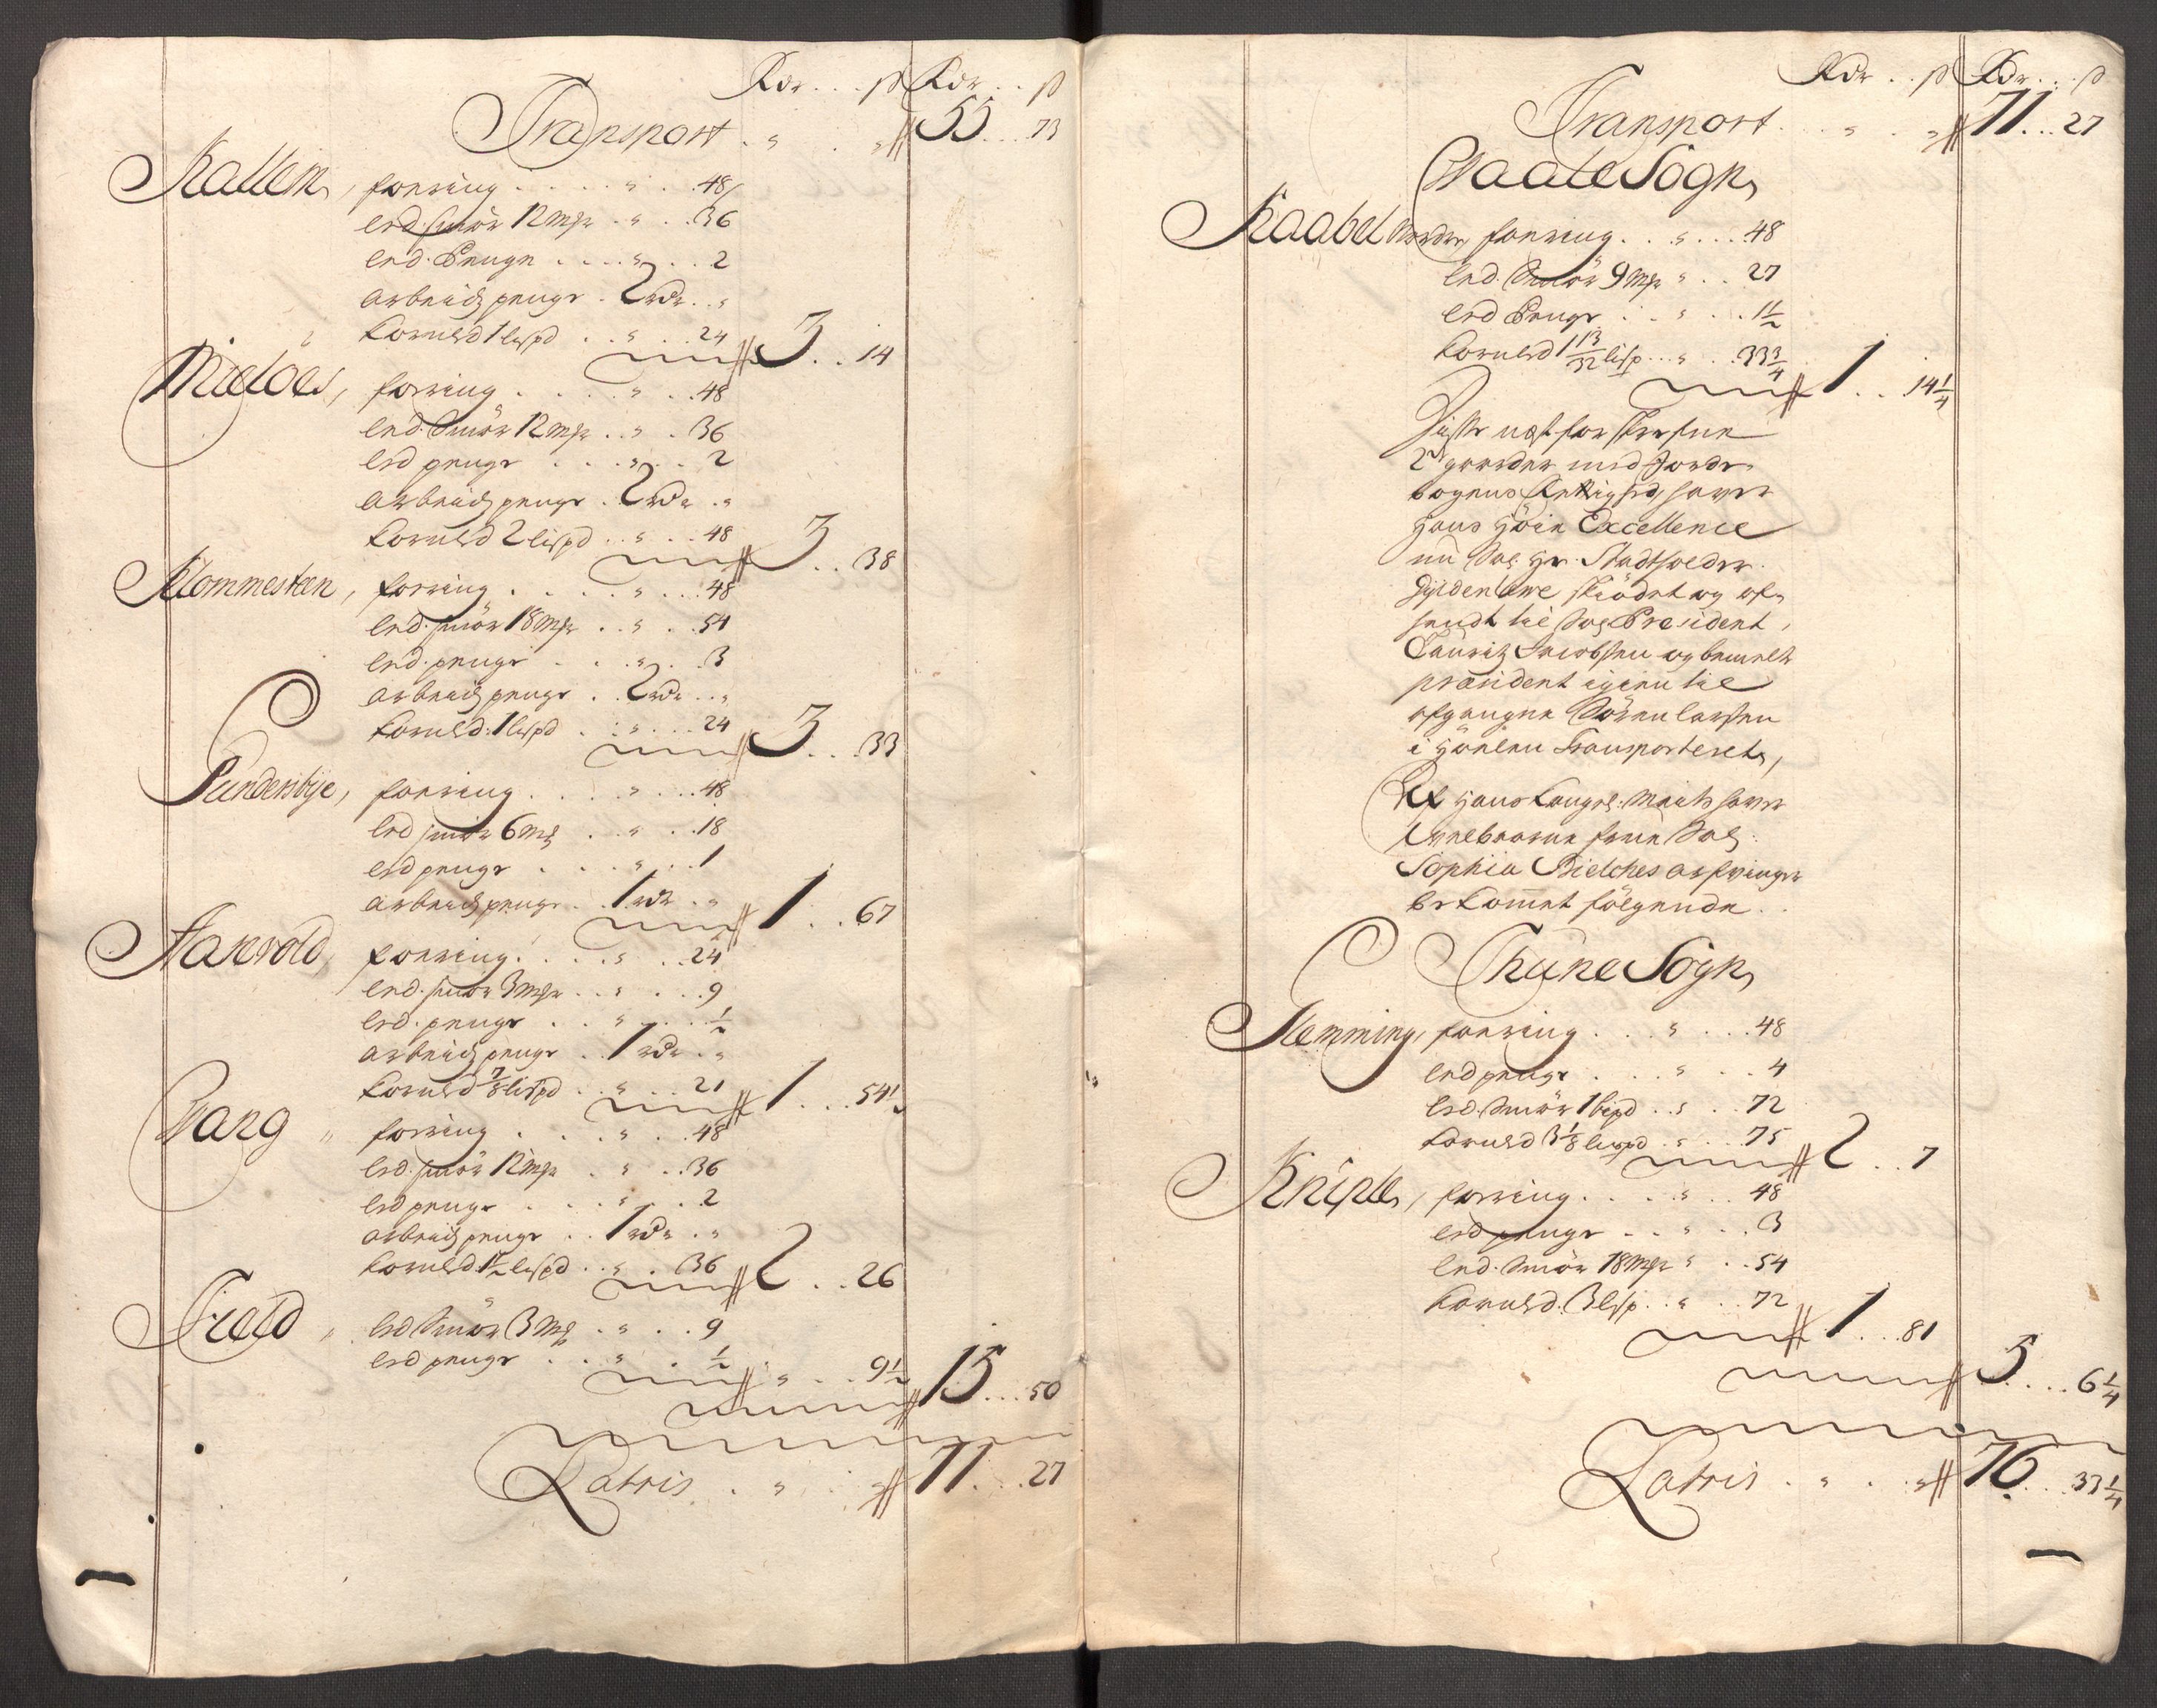 Rdr . . . ß Rdr . . ß
Transport . " . " 55 . . . 73
Kallem, forring . . . . " . . 48
led. smör 12 mkr . . " . . 36
led. Penge . . . . " . . 2
arbeidspenge . 2 rdr . . "
Kornled 1 lispd . . " . . 24
3 . . 14
Mieloes, forring . . . . " . . 48
led. Smör 12 mkr . . " . 36
led penge . . . . " . . 2
arbeidspenge . 2 rdr . "
Kornled 2 lispd . . " . . 48
3 . . 38
Klommesteen, forring . . . . " . . . 48
led. smör 18 mkr . . " . . 54
led. penge . . . " . . 3
arbeidspenge . . 2 rdr . . "
Kornled. 1 lispd . . " . . . 24
3 . . . 33
Pundersbye, forring . . . . " . . . 48
led smör 6 mk . . " . . 18
led penge . . . . " . . 1
arbeidspenge . . 1 rdr . "
1 . . . 67
Haxerold, forring . . . . " . . 24
led. smör 3 mkr . . . " . . . 9
led. penge . . . " . . . ½
arbeidspenge . . 1 rdr . "
Kornled ⅞ lispd . . " . . 21
1 . . . 54½
Warg " forring . . . . " . . 48
led. smör 12 mkr . . " . . 36
led penge . . . . " . . 2
arbeidspenge . . 1 rdr . . "
Kornled 1½ lispd . . " . 36
2 . . 26
Field " led Smör 3 mk . . " . . 9
led penge . . . " . ½
" . . . 9½
15 . . . 50
Latris . . " . " 71 . . . 27
Rdr . . ß Rdr . . . ß
Transport . . . " . " 71 . . . 27
Waale Sogn,
Kaabel Nordre, forring . . . " . . . 48
led. Smör 9 mkr " . . 27
led Penge . . . " . . . 1½
Kornled 1 13/32 lisp . . . " . . 33¾
1 . . 14¼
Diste nest forskrefne
2de gaarder med Jorde-
bogens Rettighed haver
hans höie Excellence
nu Sal. Hr. Stadtholder
Gyldenlewe skiödet og af-
hendt til Sal. President,
Lauritz Jacobsen og bemelte
president igien til
afgangne Sören larsen
i Hönen Transporteret,
Af hans Kongel. Maits haver
Velbaarne frue Sal.
Sophia Bielches arfvinger
bekommet fölgende . .
Thune Sogn,
Slemming, forring . . . " . . . 48
led penge . . . . " . . . 4
led. Smör 1 bispd . . " . . 72
Kornled 3⅛ lispd . " . . . 75
2 . . 7
Kniple, forring . . . . " . . 48
led penge . . . " . . 3
led. Smör 18 mkr " . . 54
Kornled. 3 lisp . . " . . 72
1 . . . 81
5 . . . . 6¼
Latris . . " . . " 76 . . . 33¼